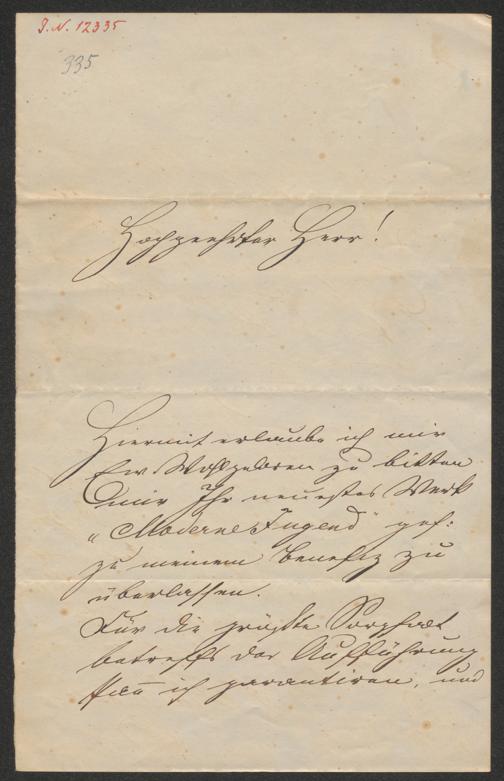 J. N. 12335
335
Hochgeehrter Herr!
Hiermit erlaube ich mir
Ew. Wohlgeboren zu bitten
mir Ihr neuestes Werk
„Moderne Jugend" gef:
zu meinem Benefiz zu
überlassen.
Für die größte Sorgfalt
betreffs der Aufführung
kan̄ ich garantiren, und